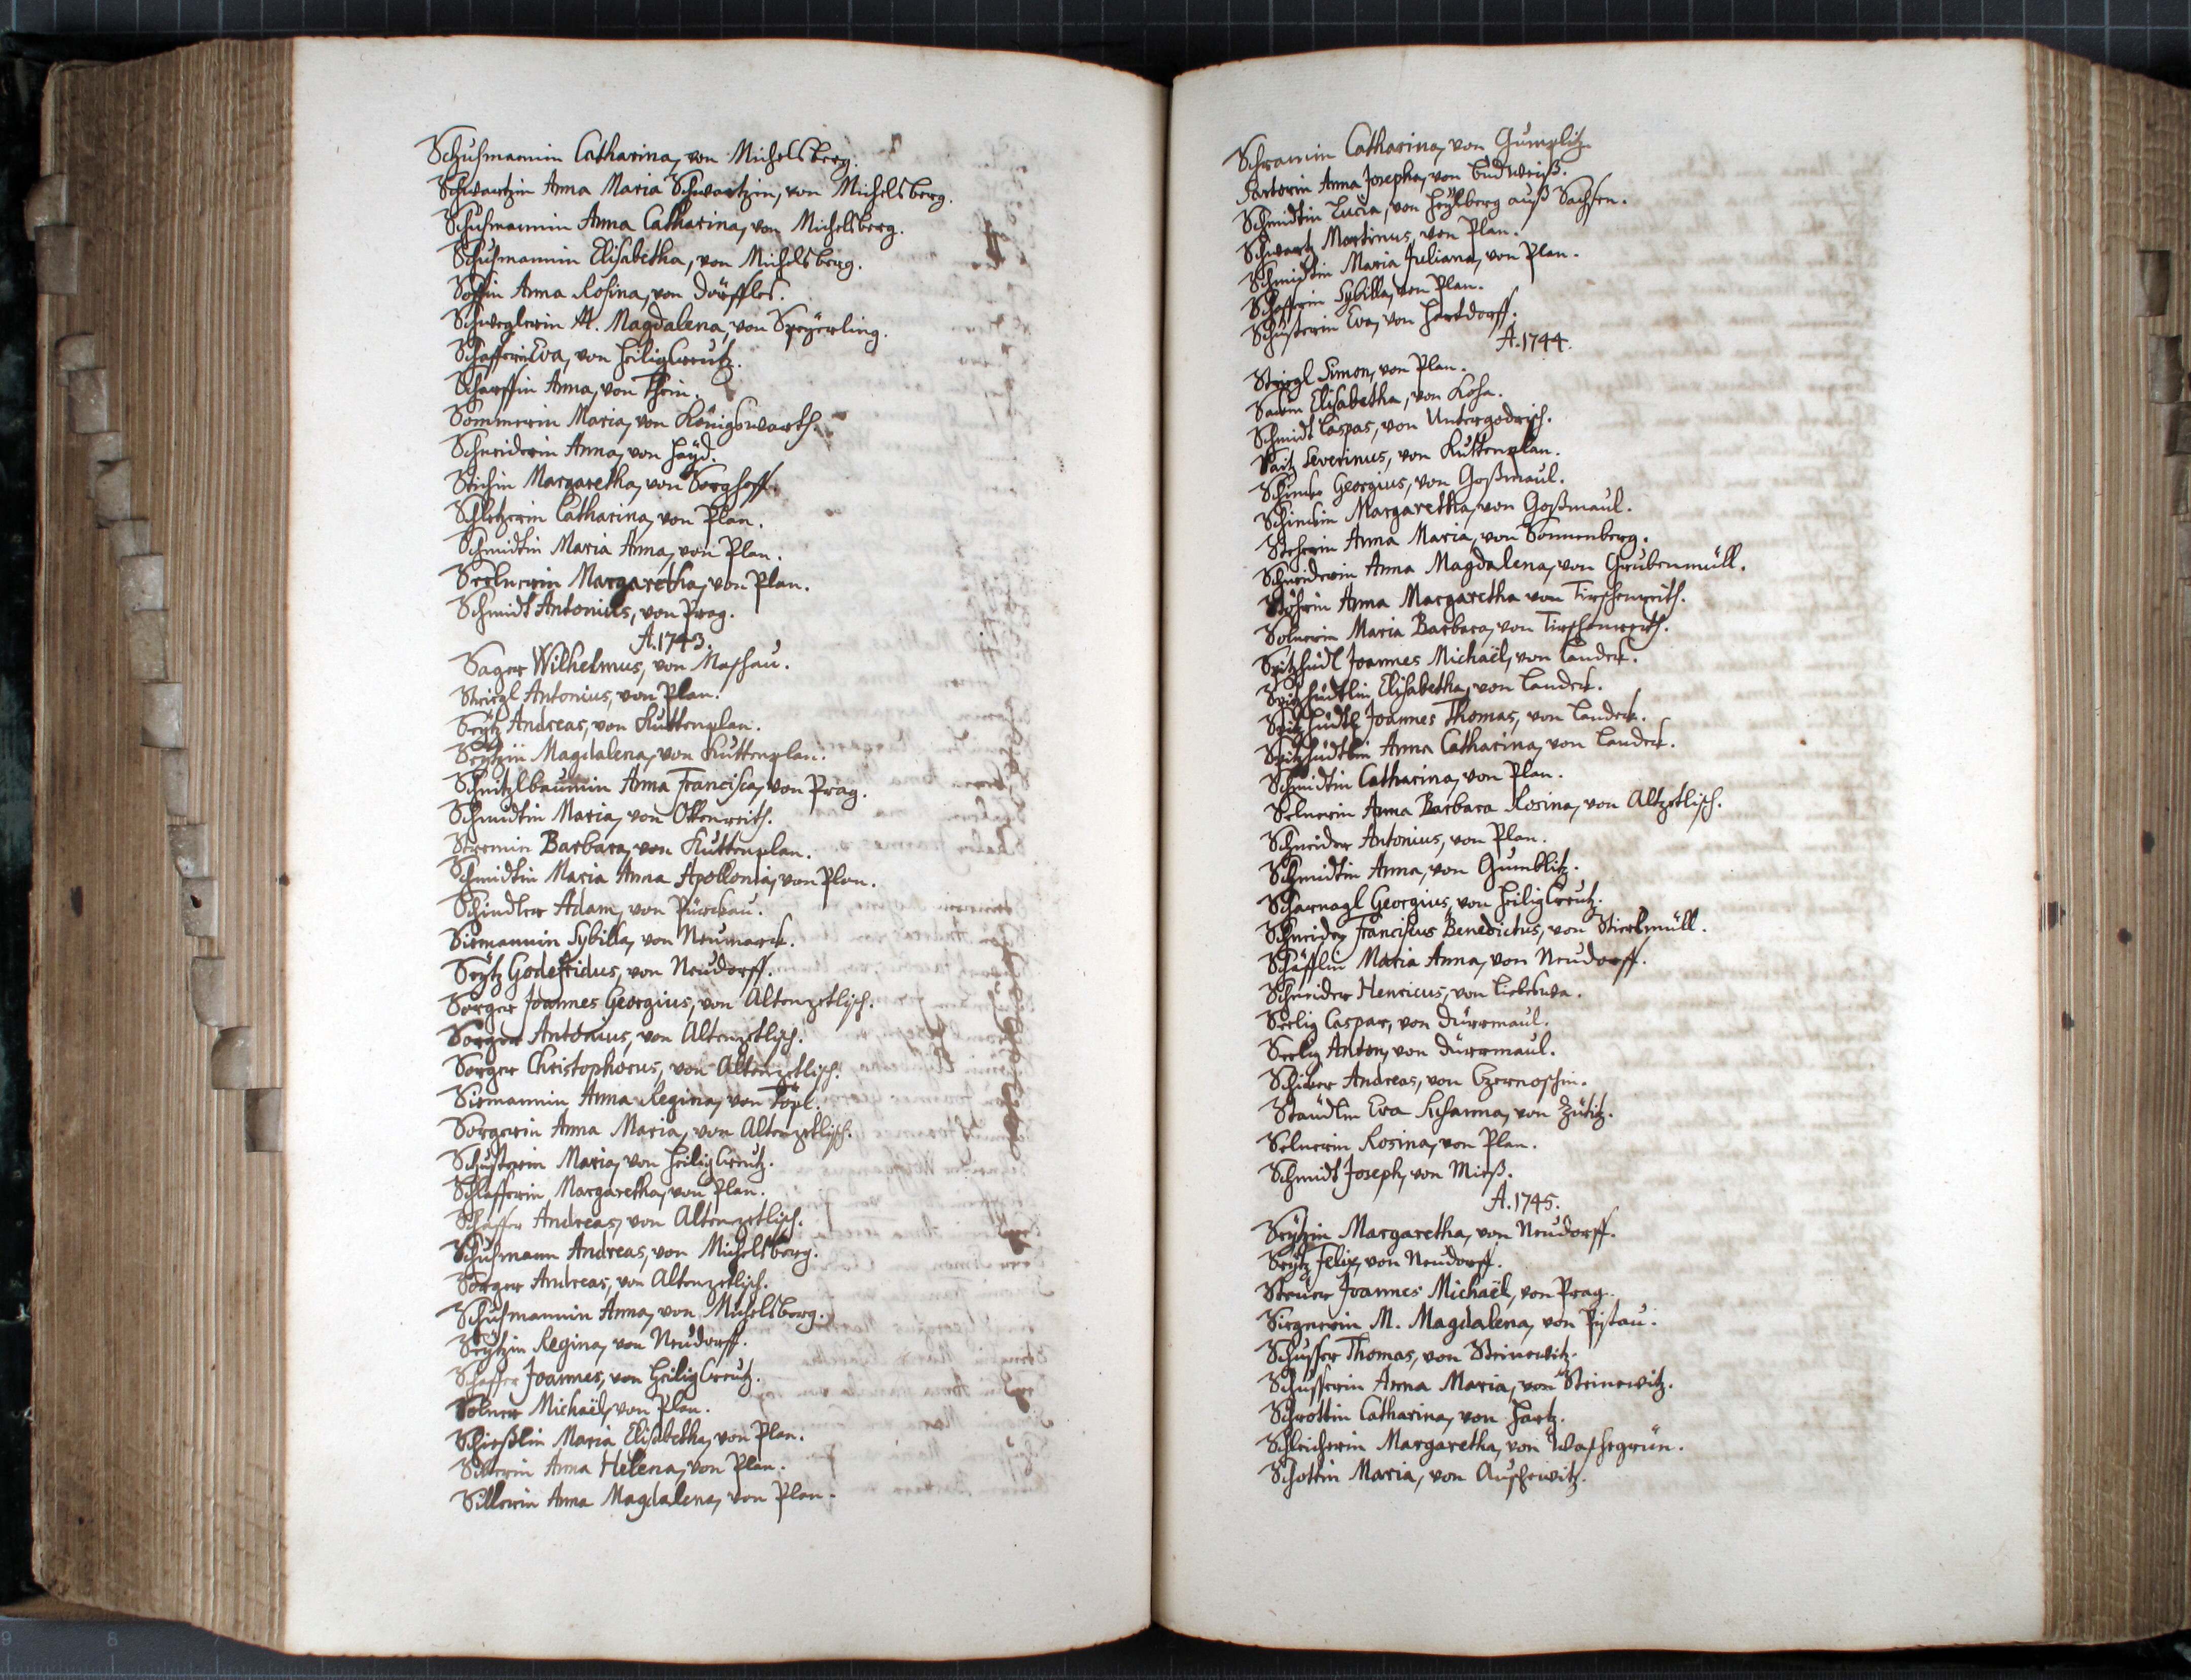 Schuhmannin Catharina, von Michelsberg.
Schwartzin Anna Maria Schwartzin, von Michelsberg.
Schuhmannin Anna Catharina, von Michelsberg.
Schuhmannin Elisabetha, von Michelsberg.
Anna Rosina, von Dörffles.
Schweglerin M. Magdalena, von Speyerling.
Schafferin Eva, von Heilig Creutz.
Scharffin Anna, von Thein.
Sommerin Maria, von Königswarth.
Schneiderin Anna, von Hayd.
Margaretha, von Sorghoff.
Catharina, von Plan.
Schmidtin Maria Anna, von Plan.
Margaretha, von Plan.
Schmidt Antonius, von Prag.
A. 1743.
Sager Wilhelmus, von Maschau.
Striegl Antonius, von Plan.
Seÿtz Andreas, von Kuttenplan.
Seÿtzin Magdalena, von Kuttenplan.
Schnitzlbaumin Anna Francisca, von Prag.
Schmidtin Maria, von Ottenreith.
Barbara, von Kuttenplan.
Schmidtin Maria Anna Apollonia, von Plan.
Schindler Adam, von
Sirmannin Sybilla, von Neumarck.
Seÿtz Godefridus, von Neudorff.
Sorger Joannes Georgius, von Altenzetlisch.
Sorger Antonius, von Altenzetlisch.
Sorger Christophorus, von Altenzetlisch.
Sirmannin Anna Regina, von Töpl.
Sorgerin Anna Maria, von Altenzetlisch.
Schusterin Maria, von Heilig Creutz.
Schlafferin Margaretha, von Plan.
Schaffer Andreas, von Altenzetlisch.
Schuhmann Andreas, von Michelsberg.
Sorger Andreas, von Altenzetlisch.
Schuhmannin Anna, von Michelsberg.
Seÿtzin Regina, von Neudorff.
Schaffer Joannes, von Heilig Creutz.
Solner Michaël, von Plan.
Schießlin Maria Elisabetha, von Plan.
Anna Helena, von Plan.
Sillerin Anna Magdalena, von Plan.
Schramin Catharina, von Gumplitz.
Sartorin Anna Josepha, von Budweiß.
Schmidtin Lucia, von Heÿlberg auß Sachsen.
Schwartz Martinus, von Plan.
Schmidtin Maria Juliana, von Plan.
Schafferin Sybilla, von Plan.
Schusterin Eva, von Hertdorff.
A. 1744.
Striegl Simon, von Plan.
Elisabetha, von
Schmidt Caspar, von Untergodrisch.
Sait Severinus, von Kuttenplan.
Georgius, von Goßmaul.
Margaretha, von Goßmaul.
Anna Maria, von Sonnenberg.
Schneiderin Anna Magdalena, von Grubenmüll.
Stöhrin Anna Margaretha von Tirschenreith.
Solnerin Maria Barbara, von Tirschenreith.
Spitzhüdl Joannes Michaël, von Landeck.
Spitzhüdtlin Elisabetha, von Landeck.
Spitzhüdtl Joannes Thomas, von Landeck.
Spitzhüdtlin Anna Catharina, von Landeck.
Schmidtin Catharina, von Plan.
Selnerin Anna Barbara Rosina, von Altzetlisch.
Schneider Antonius, von Plan.
Schmidtin Anna, von Gumblitz.
Scharnagl Georgius, von Heilig Creutz.
Schneider Franciscus Benedictus, von Stierlmüll.
Schäfflin Maria Anna, von Neudorff.
Schneider Henricus, von
Seelig Caspar, von Dürrmaul.
Seelig Anton, von Dürrmaul.
Andreas, von Czernoschin.
Eva Susanna, von
Selnerin Rosina, von Plan.
Schmidt Joseph, von Mieß.
A. 1745.
Seÿtzin Margaretha, von Neudorff.
Seÿtz Felix, von Neudorff.
Steuer Joannes Michaël, von Prag.
M. Magdalena, von Pistau.
Schusser Thomas, von Steinewitz.
Schusserin Anna Maria, von Steinewitz.
Schrottin Catharina, von Hartz.
Schleicherin Margaretha, von Waschagrün.
Schottin Maria, von Auschewitz.